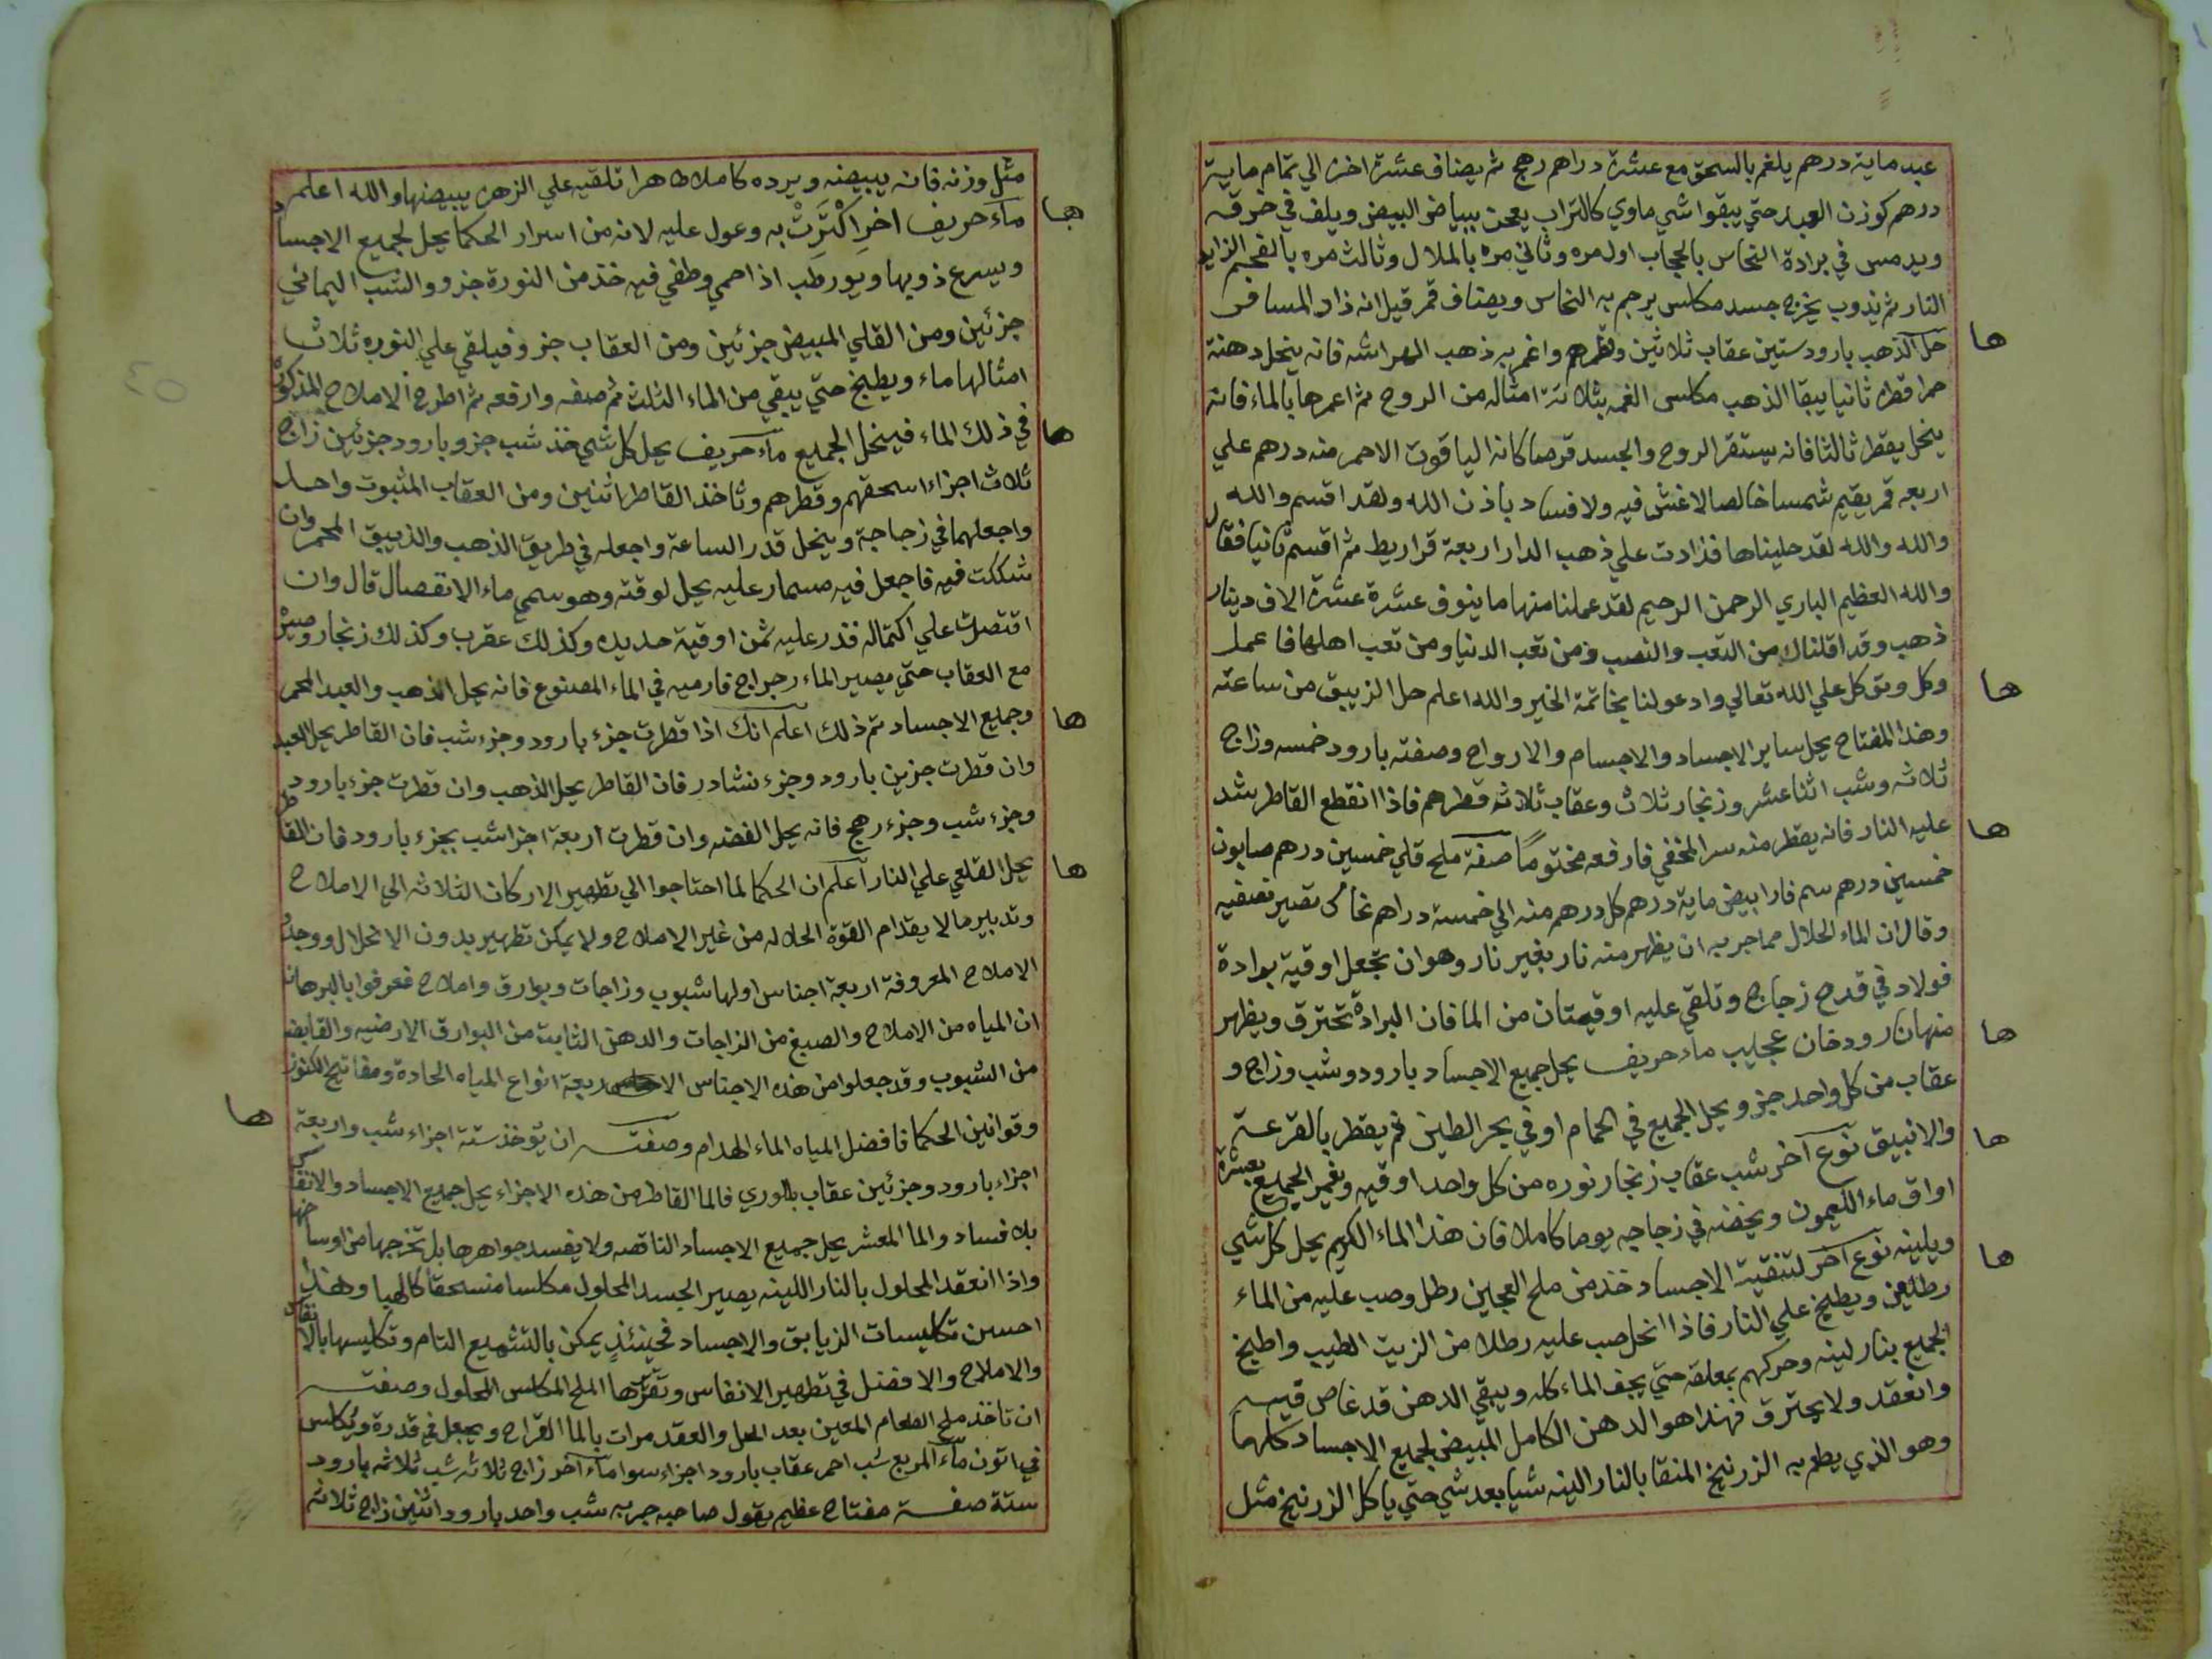 عبد ماية درهم يلغم بالسحق مع عشرة دراهم رهج ثم يضاف عشرة اخرة الي تمام ماية
درهم كوزن العبد حتي يبقوا شي ماوي كالتراب يعجن ببياض البيض ويلف في خرقه
ويدمس في برادة النحاس بالحجاب اول مره وثاني مره بالملال وثالث مره بالفحم الزايد
النار ثم يذوب يخرج جسد مكلس يرجم به النحاس ويضاف قمر قيل انه زاد المسافر
حل الذهب بارود ستين عقاب ثلاثين وقطرهم واغمر به ذهب الهراشه فانه ينحل دهنة
حمرا قطره ثانيا يبقا الذهب مكلس الغمه بثلاثة امثاله من الروح ثم اعمرها بالماء فانه
ينحل يقطر ثالثا فانه يستقر الروح والجسد قرصا كانه الياقوت الاحمر منه درهم علي
اربعه قمر يقيم شمسا خالصا لاغش فيه ولا فساد باذن الله ولقد اقسم والله
والله والله لقد حليناها فزادت علي ذهب الدار اربعة قراريط ثم اقسم ثانيا فقال
والله العظيم الباري الرحمن الرحيم لقد عملنا منها ما ينوف عشرة عشرة الاف دينار
ذهب وقد اقلناك من التعب والنصب ومن تعب الدنيا ومن تعب اهلها فاعمل
وكل وتوكل علي الله تعالي وادعولنا بخاتمة الخير والله اعلم حل الزيبق من ساعته
وهذا المفتاح يحل ساير الاجساد والاجسام والارواح وصفته بارود خمسه وزاج
ثلاثه وشب اثنا عشر وزنجار ثلاث وعقاب ثلاثه قطرهم فاذا انقطع القاطر شد
عليه النار فانه يقطر منه سر المخفي فارفعه مختوماً صفة ملح قلي خمسين درهم صابون
خمسين درهم سم فار ابيض ماية درهم كل درهم منه الي خمسة دراهم نحاس تصير نصفيه
وقال ان الماء الحلال مما جربه ان يظهر منه نار بغير نار وهو ان تجعل اوقية برادة
فولاد في قدح زجاج وتلقي عليه اوقيتان من الما فان البرادة تحترق ويظهر
منها نار ودخان عجيب ماء حريف يحل جميع الاجساد بارود وشب وزاج و
عقاب من كل واحد جز ويحل الجميع في الحمام او في بحر الطين ثم يقطر بالقرعة
والانبيق نوع آخر شب عقاب زنجار نوره من كل واحد اوقيه وغمر الجميع بعشرة
اواق ماء الليمون ويخضه في زجاجه يوما كاملا فان هذا الماء الكريم يحل كل شي
ويلينه نوع آخر لتنقية الاجساد خذ من ملح العجين رطل وصب عليه من الماء
رطلين ويطبخ علي النار فاذا انحل صب عليه رطلا من الزيت الطيب واطبخ
الجميع بنار لينه وحركهم بمعلقه حتي يجف الماء كله ويبقي الدهن قد غاص فيه
وانعقد ولا يحترق فهذا هو الدهن الكامل المبيض لجميع الاجساد كلها
وهو الذي يطعم به الزرنيخ المنقا بالنار الينه شيا بعد شي حتي ياكل الزرنيخ مثل
مثل وزنه فانه يبيضه ويرده كاملا طاهرا تلقيه علي الزهرة يبيضها والله اعلم
ماء حريف اخر اكْتَرِثْ به وعول عليه لانه من اسرار الحكما يحل لجميع الاجساد
ويسرع ذوبها ويورطب اذا حمي وطفي فيه خذ من النورة جزو والشب اليماني
جزئين ومن القلي المبيض جزئين ومن العقاب جزو فيلقي علي النوره ثلاث
امثالها ماء ويطبخ حتي يبقي من الماء الثلث ثم صفه وارفعه ثم اطرح الاملاح المذكور
في ذلك الماء فينحل الجميع ماء حريف يحل كل شي خذ شب جزو بارود جزئين زاج
ثلاث اجزاء اسحقهم وقطرهم وتاخذ القاطر اثنين ومن العقاب المثبوت واحد
واجعلهما في زجاجة وينحل قدر الساعة واجعله في طريق الذهب والزيبق المحمر وان
شككت فيه فاجعل فيه مسمار عليه يحل لوقته وهو سمي ماء الانفصال قال وان
اقتصرت علي اكتماله فذر عليه ثمن اوقية حديده وكذلك عقرب وكذلك زنجار وصير
مع العقاب حتي يصير الماء رجراج فارميه في الماء المصنوع فانه يحل الذهب والعبد المحمر
وجميع الاجساد تم ذلك اعلم انك اذا قطرت جزء بارود وجزء شب فان القاطر يحل العبد
وان قطرت جزين بارود وجزء نشادر فان القاطر يحل الذهب وان قطرت جزء بارود
وجزء شب وجزء رهج فانه يحل الفضه وان قطرت اربعة اجزا شب بجزء بارود فان القاطر
يحل القلعي علي النار اعلم ان الحكما لما احتاجوا الي تطهير الاركان الثلاثه الي الاملاح
وتدبير مالا يقدام القوة الحلاله من غير الاملاح ولا يمكن تطهير بدون الانحلال ووجدو
الاملاح المعروفة اربعة اجناس اولها شبوب وزاجات وبوارق واملاح فعرفوا بالبرهان
ان المياه من الاملاح والصبغ من الزاجات والدهن الثابت من البوارق الارضيه والقابضه
من الشبوب وقد جعلوا من هذه الاجناس الاربعة انواع المياه الحادة ومفاتيح الكنوز
وقوانين الحكما فافضل المياه الماء الهدام وصفته ان تؤخذ ستة اجزاء شب واربعة
اجزاء بارود وجزئين عقاب بللوري فالما القاطر من هذه الاجزاء يحل جميع الاجساد والانفاس
بلا فساد والما المعشر يحل جميع الاجساد الناقصه ولا يفسد جواهرها بل تخرجها من اوساخها
واذا انعقد المحلول بالنار اللينه يصير الجسد المحلول مكلسا منسحقا كالهبا وهذا
احسن تكليسات الزيابق والاجساد فحينئذٍ يمكن بالتشميع التام وتكليسها بالانفاس
والاملاح والافضل في تطهير الانفاس وتقرّها الملح المكلس المحلول وصفته
ان تاخذ ملح الطعام المعين بعد الحل والعقد مرات بالما القراح ويجعل في قدرة ويكلس
في اتون ماء المربع شب احمر عقاب بارود اجزاء سوا ماء آخر زاج ثلاثه شب ثلاثه بارود
ستة صفة مفتاح عظيم يقول صاحبه جربه شب واحد بارود اثنين زاج ثلاثه
ها
ها
ها
ها
ها
ها
ها
ها
ها
ها
ها